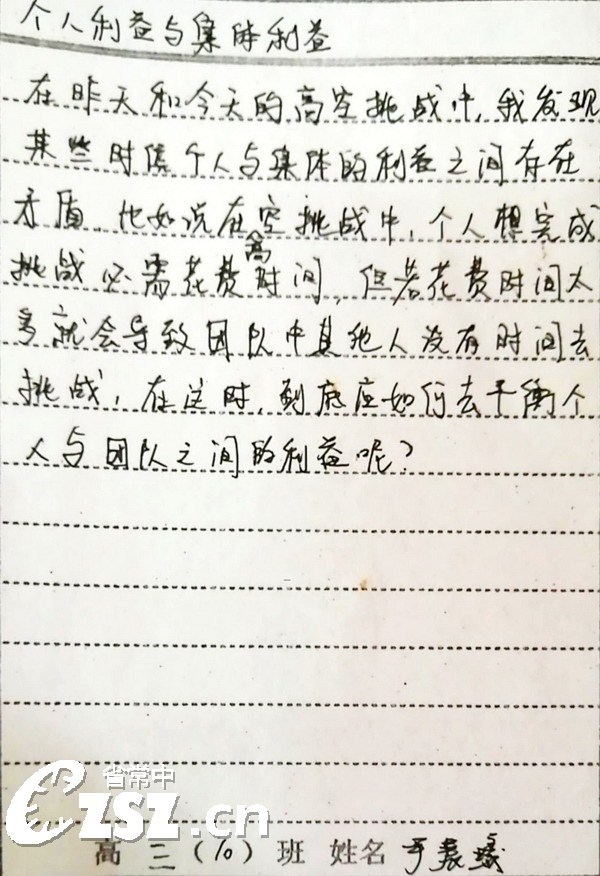 个人利益与集体利益
在昨天和今天的高空挑战中,我发现
某些时候个人与集体的利益之间存在
矛盾,比如说在高空挑战中,个人想完成
挑战必需花费时间,但若花费时间太
多就会导致团队中其他人没有时间去
挑战,在这时,到底应如何去平衡个
人与团队之间的利益呢?
省常中
czsz.cn
高三(10)班 姓名